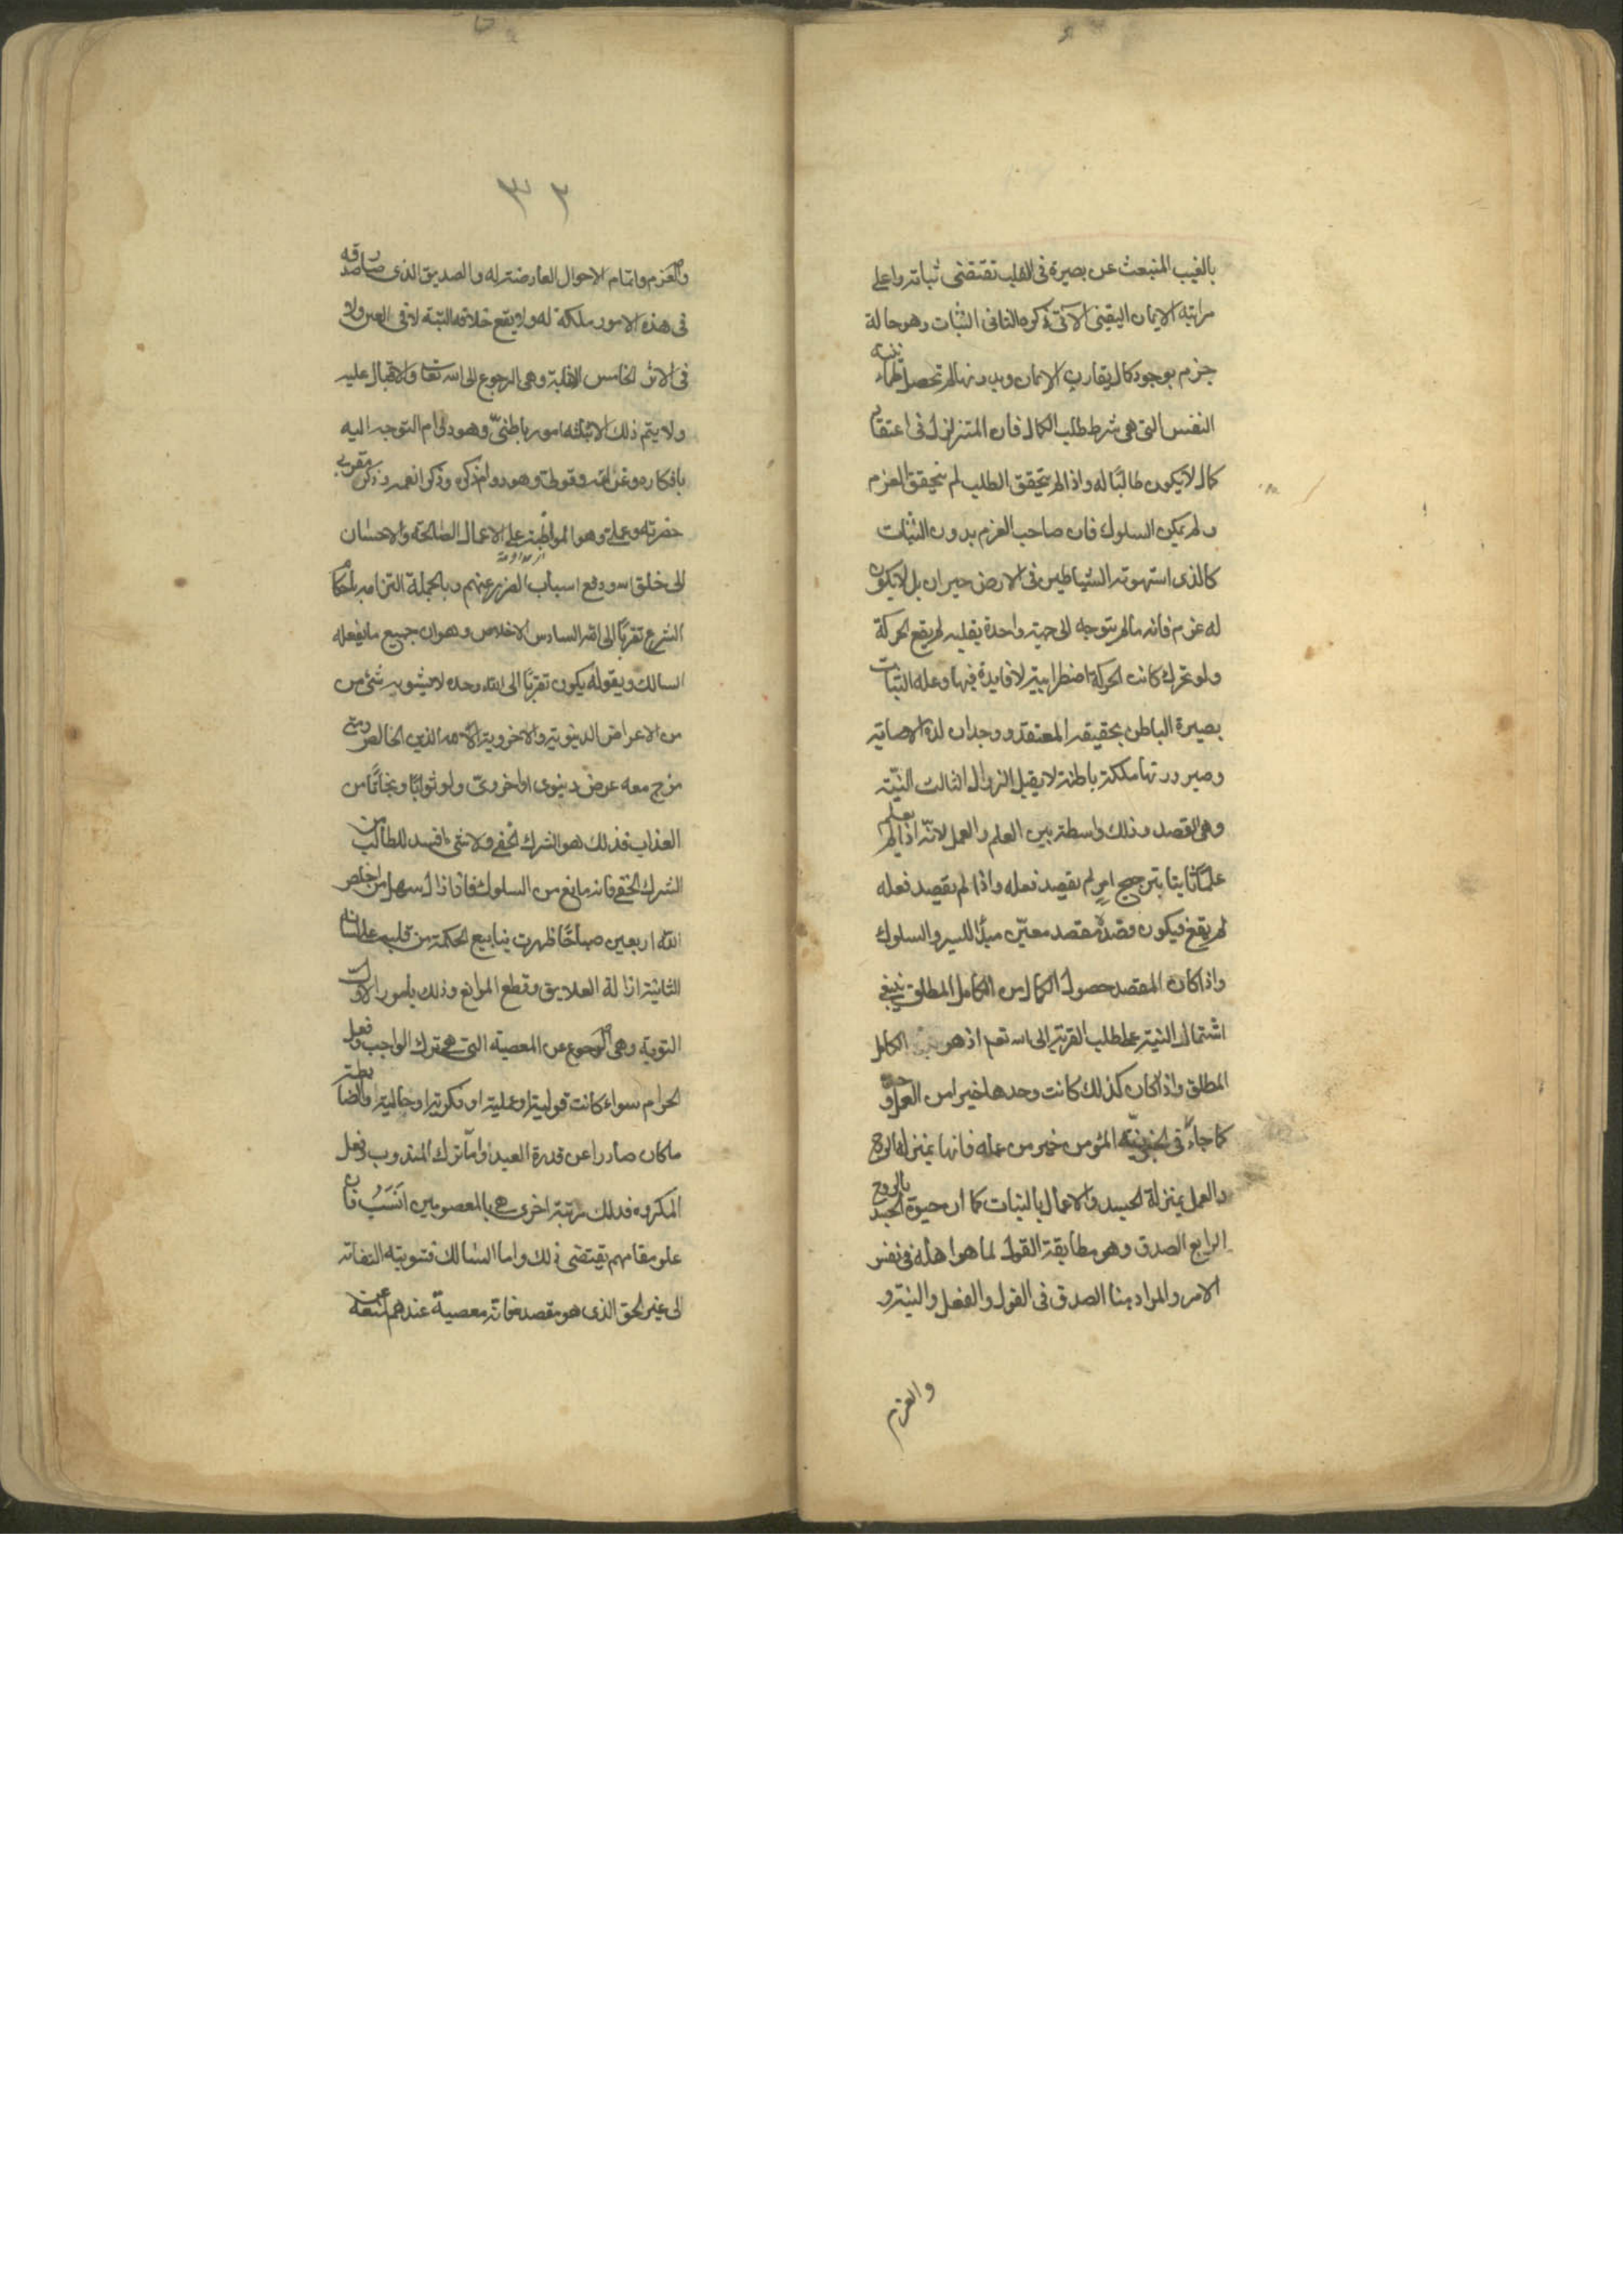 بالغيب المنبعث عن بصيرة فى القلب تقتضى ثباته واعلى
مراتبه الايمان اليقينى الآتى ذكره الثانى الثبات وهو حالة
جزم بوجود كمال يقارب الايمان وبدونها لم تحصل طمانينه
النفس التى هى شرط طلب الكمال فان المتزلزل فى اعتقاد
كمال لا يكون طالبًا له واذا لم يتحقق الطلب لم يتحقق العزم
ولم يمكن السلوك فان صاحب العزم بدون الثبات
كالذى استهوته الشياطين فى الارض حيران بل لا يكون
له عزم فانه مالم يتوجه الى جهة واحدة بقلبه لم يقع الحركة
ولو تحرك كانت الحركة اضطرابية لا فايدة فيها وعله الثبات
بصيرة الباطن بحقيقة المعتقد ووجدان لذة الاصابة
وصيرورتها ملكة باطنة لا يقبل الزوال الثالث النيّة
وهى القصد وذلك واسطة بين العلم والعمل لانّه اذا لم يعلم
علمًا ثابتا بترجيح امرٍ لم يقصد فعله واذا لم يقصد فعله
لم يقع فيكون قصده مقصد معيّن مبدأ للسير والسلوك
واذا كان المقصد حصول الكمال من الكامل المطلق ينبغى
اشتمال النية على طلب القربة الى الله تعم اذ هو الكامل
المطلق واذا كان كذلك كانت وحدها خيرا من العمل وحده
كما جاء فى الخبر نية المؤمن خير من عمله فانها بمنزلة الروح
والعمل بمنزلة الجسد والاعمال بالنيات كما ان حيوة الجسد بالروح
الرابع الصدق وهو مطابقة القول لما هو اهله فى نفس
الامر والمراد هنا الصدق فى القول والفعل والنية و
والعزم
٣٢
والعزم واتمام الاحوال العارضة له والصديق الذى صار صدقه
فى هذه الامور ملكة له ولا يقع خلافه البتة لا فى العين ولا
فى الاثر الخامس الانابة وهى الرجوع الى الله تعا والاقبال عليه
ولا يتم ذلك الا بثلثه امور باطنىّ وهو دوام التوجه اليه
بافكاره وقولى وهو دوام ذكره وذكر انعمه وذكر مقربى
حضرته وعملى وهو المواظبة على الاعمال الصالحة والاحسان
الى خلق الله ودفع اسباب الضرر عنهم وبالجملة التزامه باحكام
الشرع تقربًا الى الله السادس الاخلاص وهو ان جميع ما يفعله
السالك ويقوله يكون تقربًا الى الله وحده لا يشوبه شئ من
من الاعراض الدينوية والاخروية الا لله الدين الخالص ومتى
مزج معه عرض دينوى او اخروىّ ولو ثوابًا ونجاتًا من
العذاب فذلك هو الشرك الخفى ولا شئ افسد للطالب من
الشرك الخفى فانه مانع من السلوك فاذا زال سهل من اخلص
لله اربعين صباحًا ظهرت ينابيع الحكمة من قلبه على لسانه
الثانية ازالة العلايق وقطع الموانع وذلك بامور الاول
التوبة وهى الرجوع عن المعصية التى هى ترك الواجب وفعل
الحرام سواء كانت قولية او فعلية او فكرية او حالية والضابطة
ما كان صادرا عن قدرة العبد وامّا ترك المندوب وفعل
المكروه فذلك مرتبة اخرى هى بالمعصومين انسَب فان
علو مقامهم يقتضى ذلك واما السالك فتوبته التفاته
الى غير الحق الذى هو مقصده فانه معصية عندهم